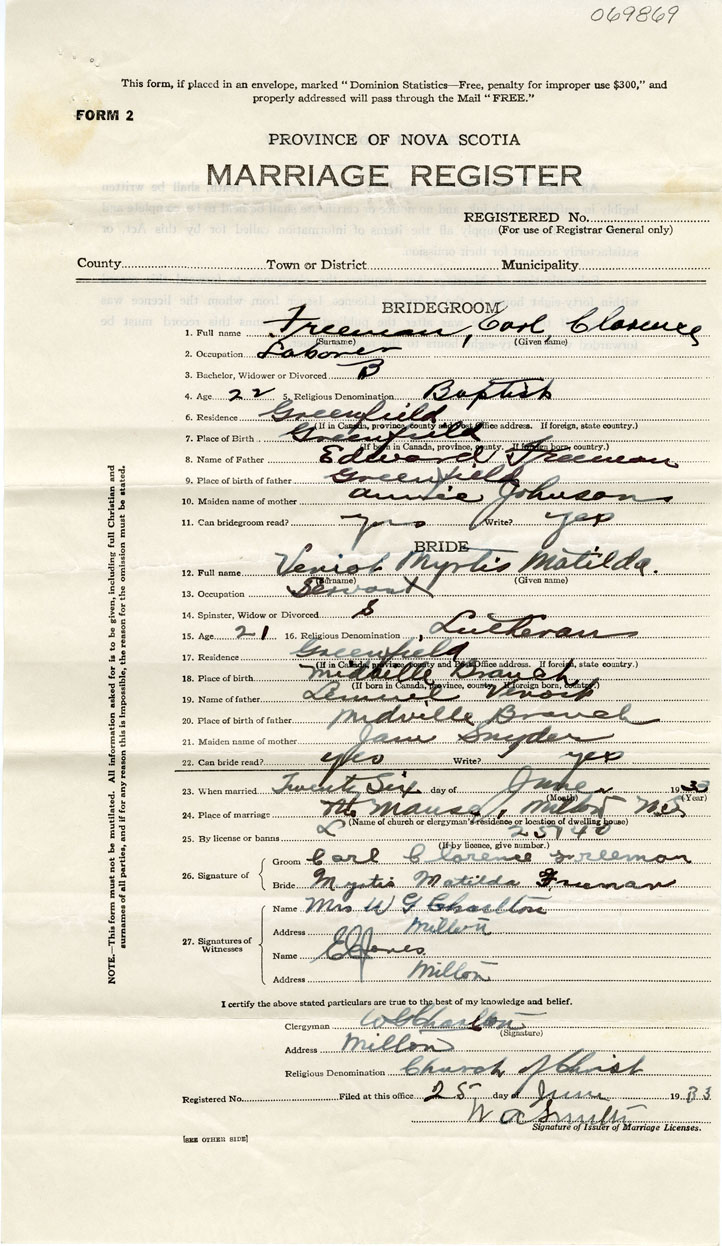 069869
This form, if placed in an envelope, marked "Dominion Statistics—Free, penalty for improper use $300," and
properly addressed will pass through the Mail "FREE."
FORM 2
PROVINCE OF NOVA SCOTIA
MARRIAGE REGISTER
REGISTERED No.
(For use of Registrar General only)
County Town or District Municipality
BRIDEGROOM
1. Full name Freeman, Carl Clarence
(Surname) (Given name)
2. Occupation Laborer
3. Bachelor, Widower or Divorced B
4. Age 22 5. Religious Denomination Baptist
6. Residence Greenfield
(If in Canada, province, county and Post Office address. If foreign, state country.)
7. Place of Birth Greenfield
(If born in Canada, province, county. If foreign born, country.)
8. Name of Father Edward Freeman
9. Place of birth of father Greenfield
10. Maiden name of mother Annie Johnson
11. Can bridegroom read? yes Write? yes
BRIDE
12. Full name Veniot Myrtis Matilda.
(Surname) (Given name)
13. Occupation Servant
14. Spinster, Widow or Divorced S
15. Age 21 16. Religious Denomination Lutheran
17. Residence Greenfield
(If in Canada, province, county and Post Office address. If foreign, state country.)
18. Place of birth Midville Branch
(If born in Canada, province, county. If foreign born, country.)
19. Name of father Lemuel Veniot
20. Place of birth of father Midville Branch
21. Maiden name of mother Jane Snyder
22. Can bride read? yes Write? yes
23. When married Twenty Six day of June 1933
(Month) (Year)
24. Place of marriage The Manse, Milton N.S.
(Name of church or clergyman's residence or location of dwelling house)
25. By license or banns L 25740
(If by licence, give number.)
26. Signature of Groom Carl Clarence Freeman
Bride Myrtis Matilda Freeman
27. Signatures of Witnesses
Name Mrs W G Charlton
Address Milton
Name
Address Milton
I certify the above stated particulars are true to the best of my knowledge and belief.
Clergyman W G Charlton
(Signature)
Address Milton
Religious Denomination Church of Christ
Registered No. Filed at this office 25 day of June 1933
W A Smith
Signature of Issuer of Marriage Licenses.
[SEE OTHER SIDE]
NOTE.—This form must not be mutilated. All information asked for is to be given, including full Christian and
surnames of all parties, and if for any reason this is impossible, the reason for the omission must be stated.